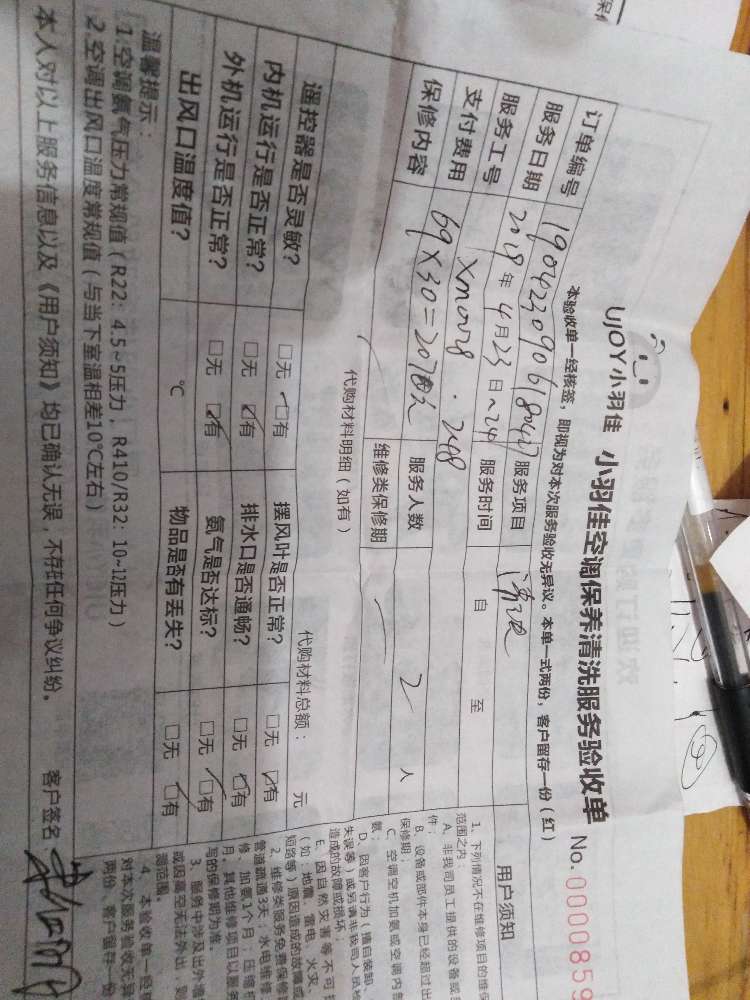 UJOY小羽佳 小羽佳空调保养清洗服务验收单 No. 0000859
本验收单一经核签，即视为对本次服务验收无异议。本单一式两份，客户留存一份（红）
订单编号 服务项目 清洗
服务日期 2019年4月23日~24 服务时间 自 至
服务工号 Xm0028 . 248
支付费用 69×30=2070元 服务人数 2 人
保修内容 维修类保修期
代购材料明细（如有） 代购材料总额： 元
遥控器是否灵敏？ □无 □有 摆风叶是否正常？ □无 □有
内机运行是否正常？ □无 □有 排水口是否通畅？ □无 □有
外机运行是否正常？ □无 □有 氨气是否达标？ □无 □有
出风口温度值？ ℃ 物品是否有丢失？ □无 □有
温馨提示：
1.空调氨气压力常规值（R22：4.5~5压力，R410/R32：10~12压力）
2.空调出风口温度常规值（与当下室温相差10℃左右）
本人对以上服务信息以及《用户须知》均已确认无误，不存在任何争议纠纷。 客户签名
用户须知
1、下列情况不在维修项目的维保
范围之内：
A、非我司员工提供的设备或
件；
B、设备或部件本身已经超过出
保修期；
C、空调空机加氨或空调内部
氨；
D、因客户行为（擅自装卸、
失误等）或另请非我司人员检
造成的故障或损坏；
E、因自然灾害等不可
（如：地震、雷电、火灾、
短路等）原因造成的故障或
2、维修类服务免费保修
管道疏通3天；水电维修
修、加氨1个月；压缩机
月。其他维修项目以服务
写的保修期为准。
3、服务中涉及出外墙
或因高空无法外出，则
4、本验收单一经
对本次服务验收无异
两份，客户留存一份